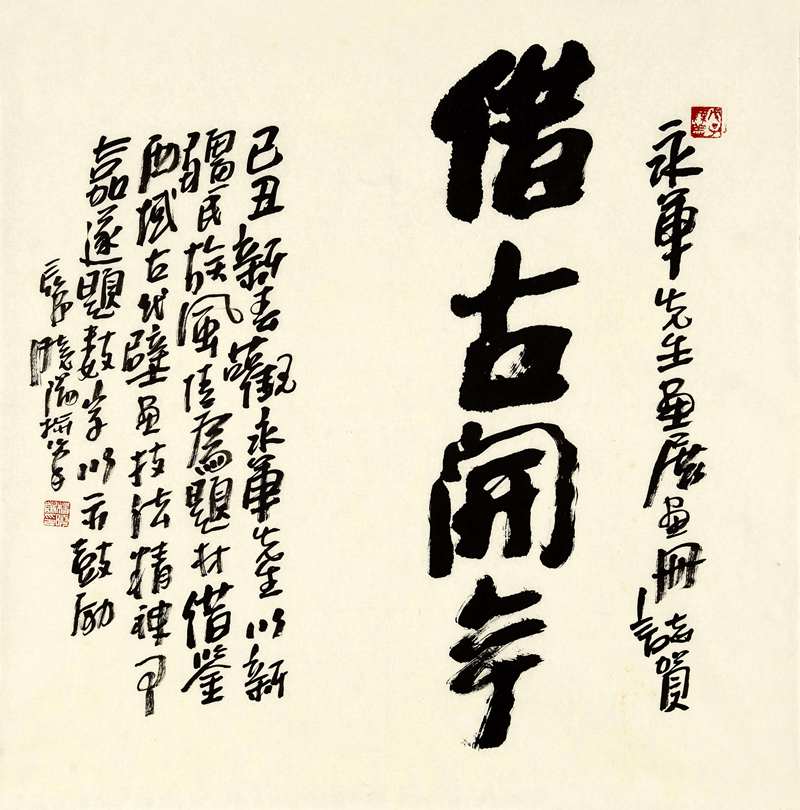 永軍先生畫展畫冊誌賀
借古開今
己丑新春觀永軍先生以新
疆民族風情為題材借鑒
西域古代壁畫技法精神可
嘉遂題數字以示鼓励
長安